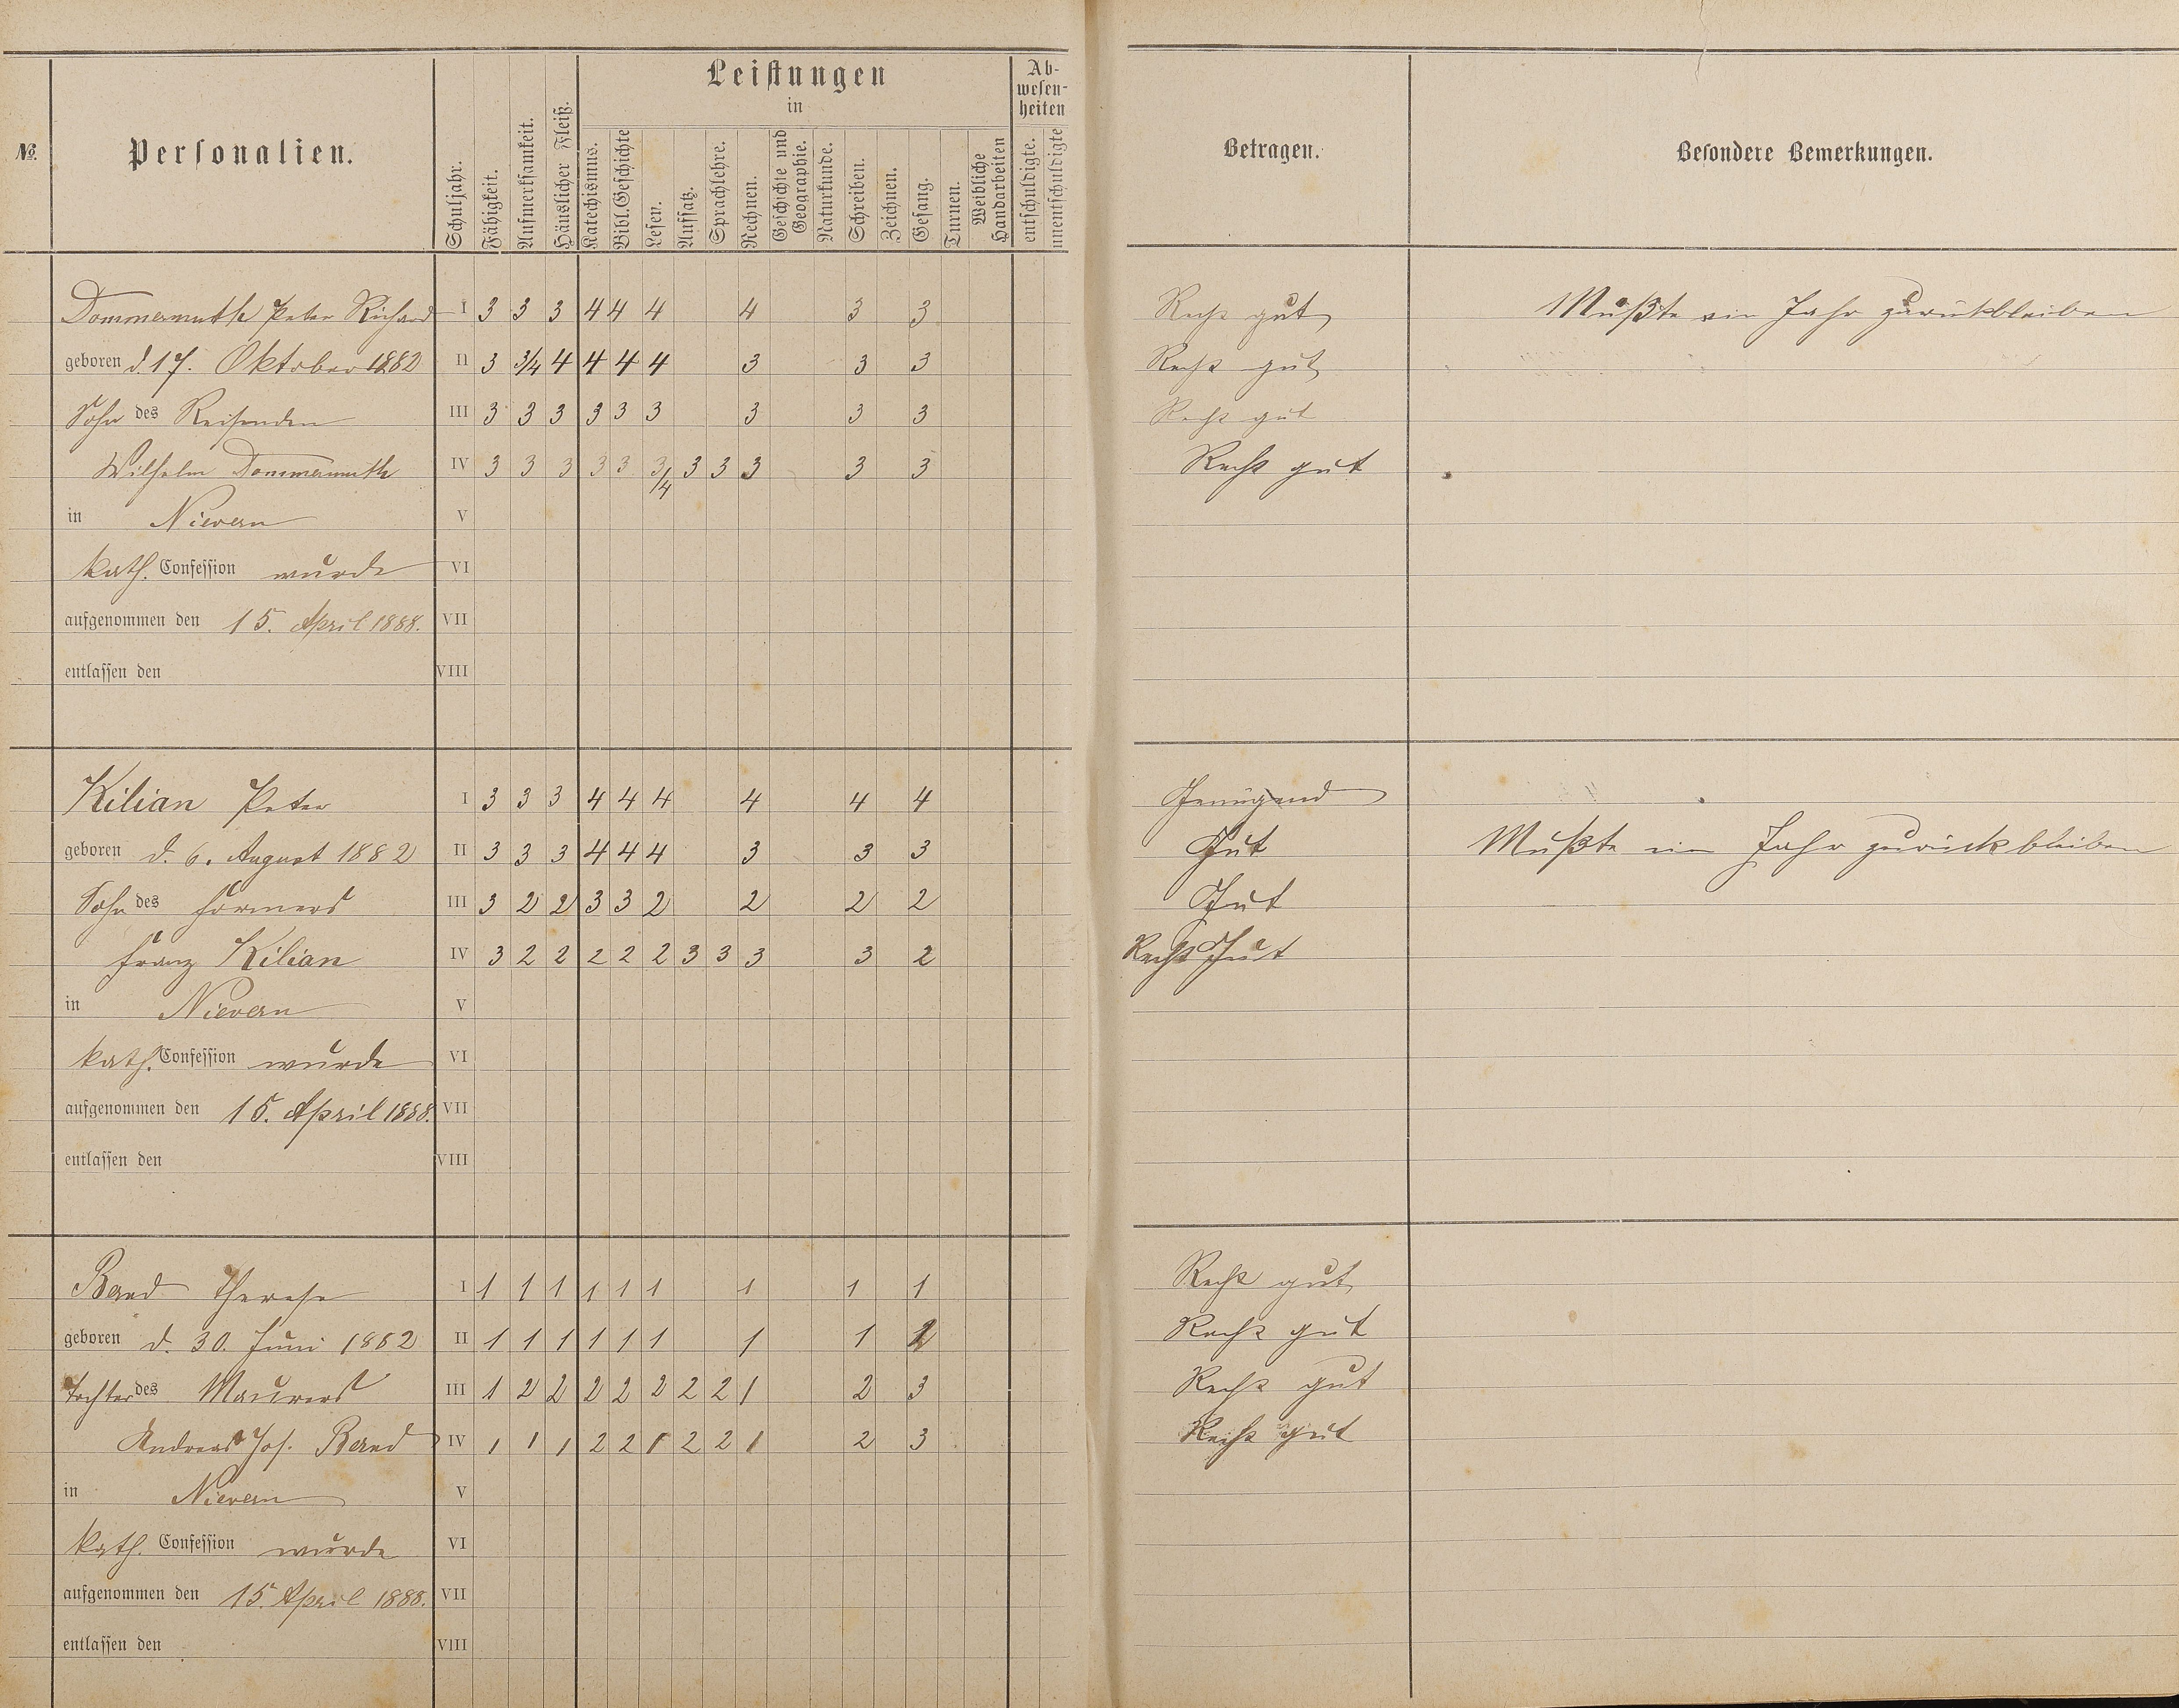 Leistungen
in
Ab-
wesen-
heiten
No.
Personalien.
Schuljahr.
Fähigkeit.
Aufmerksamkeit.
Häuslicher Fleiß.
Katechismus.
Bibl. Geschichte
Lesen.
Aufsatz.
Sprachlehre.
Rechnen.
Geschichte und
Geographie.
Naturkunde.
Schreiben.
Zeichnen.
Gesang.
Turnen.
Weibliche
Handarbeiten
entschuldigte.
unentschuldigte
Betragen.
Besondere Bemerkungen.
Dommermuth Peter Richard I 3 3 3 4 4 4 4 3 3 Recht gut Mußte ein Jahr zurückbleiben
geboren d. 17. Oktober 1882 II 3 3/4 4 4 4 4 3 3 3 Recht gut
Sohn des Reisenden III 3 3 3 3 3 3 3 3 3 Recht gut
Wilhelm Dommermuth IV 3 3 3 3 3 3/4 3 3 3 3 3 Recht gut
in Nievern V
kath. Confession wurde VI
aufgenommen den 15. April 1888. VII
entlassen den VIII
Kilian Peter I 3 3 3 4 4 4 4 4 4 Genügend
geboren d. 6. August 1882 II 3 3 3 4 4 4 3 3 3 Gut Mußte ein Jahr zurückbleiben
Sohn des Formers III 3 2 2 3 3 2 2 2 2 Gut
Franz Kilian IV 3 2 2 2 2 2 3 3 3 3 2 Recht Gut
in Nievern V
kath. Confession wurde VI
aufgenommen den 15. April 1888. VII
entlassen den VIII
Band Therese I 1 1 1 1 1 1 1 1 1 Recht gut
geboren d. 30. Juni 1882 II 1 1 1 1 1 1 1 1 2 Recht gut
Tochter des Maurers III 1 2 2 2 2 2 2 2 1 2 3 Recht gut
Andreas Jos. Band IV 1 1 1 2 2 1 2 2 1 2 3 Recht gut
in Nievern V
kath. Confession wurde VI
aufgenommen den 15. April 1888. VII
entlassen den VIII